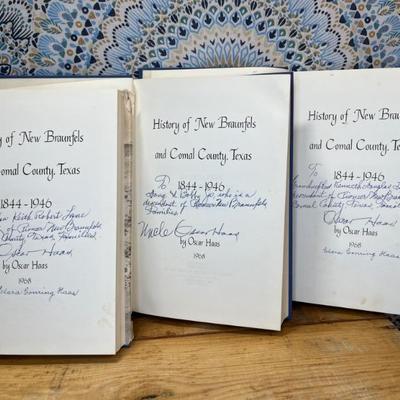 History of New Braunfels
and Comal County, Texas
1844-1946
Keith Robert Lane
of Pioneer New Braunfels
County, Texas, Families
Oscar Haas
by Oscar Haas
1968
Clara Conring Haas
History of New Braunfels
and Comal County, Texas
To
1844-1946
Bobby who is a
descendant of Pioneer New Braunfels
Families!
Uncle Oscar Haas
by Oscar Haas
1968
History of New Braunfels
and Comal County, Texas
To
1844-1946
Kenneth Douglas
descendant of Pioneer New Braunfels
Comal County, Texas,
Oscar Haas
by Oscar Haas
1968
Clara Conring Haas